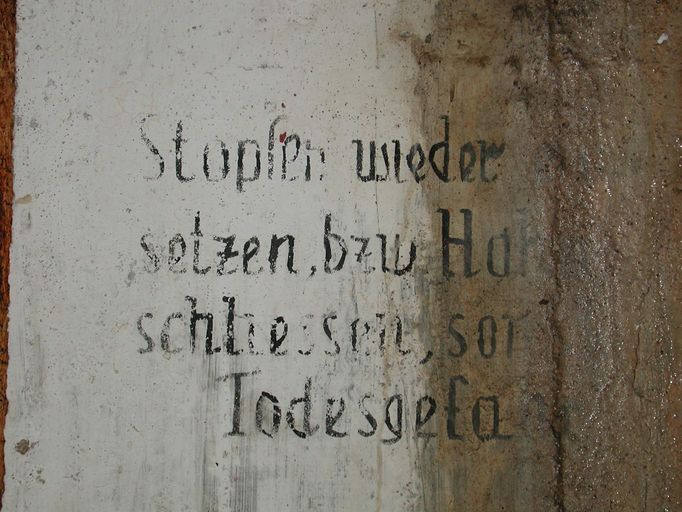 Stopfen wieder
setzen, bzw. Hah
schliessen, son
Todesgefahr